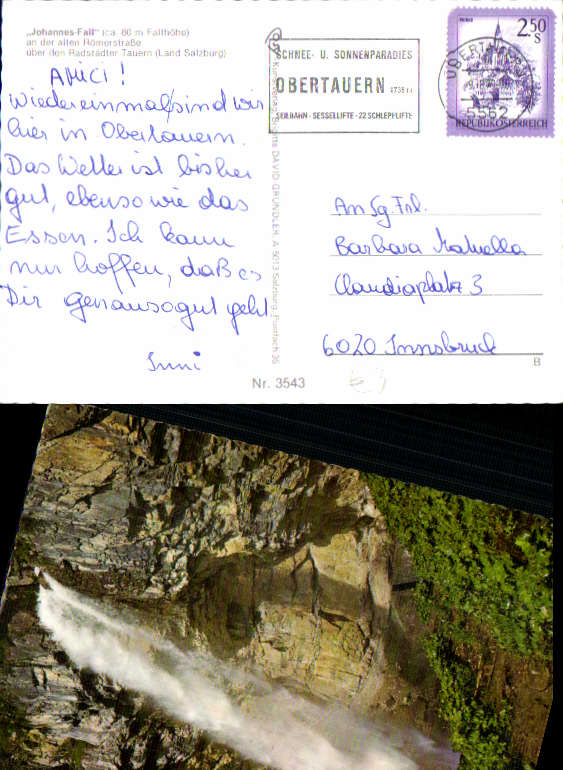 „Johannes-Fall" (ca. 80 m Fallhöhe)
an der alten Römerstraße
über den Radstädter Tauern (Land Salzburg)
AMICI!
Wiedereinmal sind wir
hier in Obertauern.
Das Wetter ist bisher
gut, ebenso wie das
Essen. Ich kann
nur hoffen, daß es
Dir genausogut geht
Nr. 3543
DAVID GRÜNDLER, A 5013 Salzburg, Postfach 36
SCHNEE- U. SONNENPARADIES
OBERTAUERN
SEILBAHN - SESSELLIFTE - 22 SCHLEPPLIFTE
2.50
S
REPUBLIK ÖSTERREICH
OBERTAUERN
5562
An Sg. Frl.
Barbara
Claudiaplatz 3
6020 Innsbruck
B